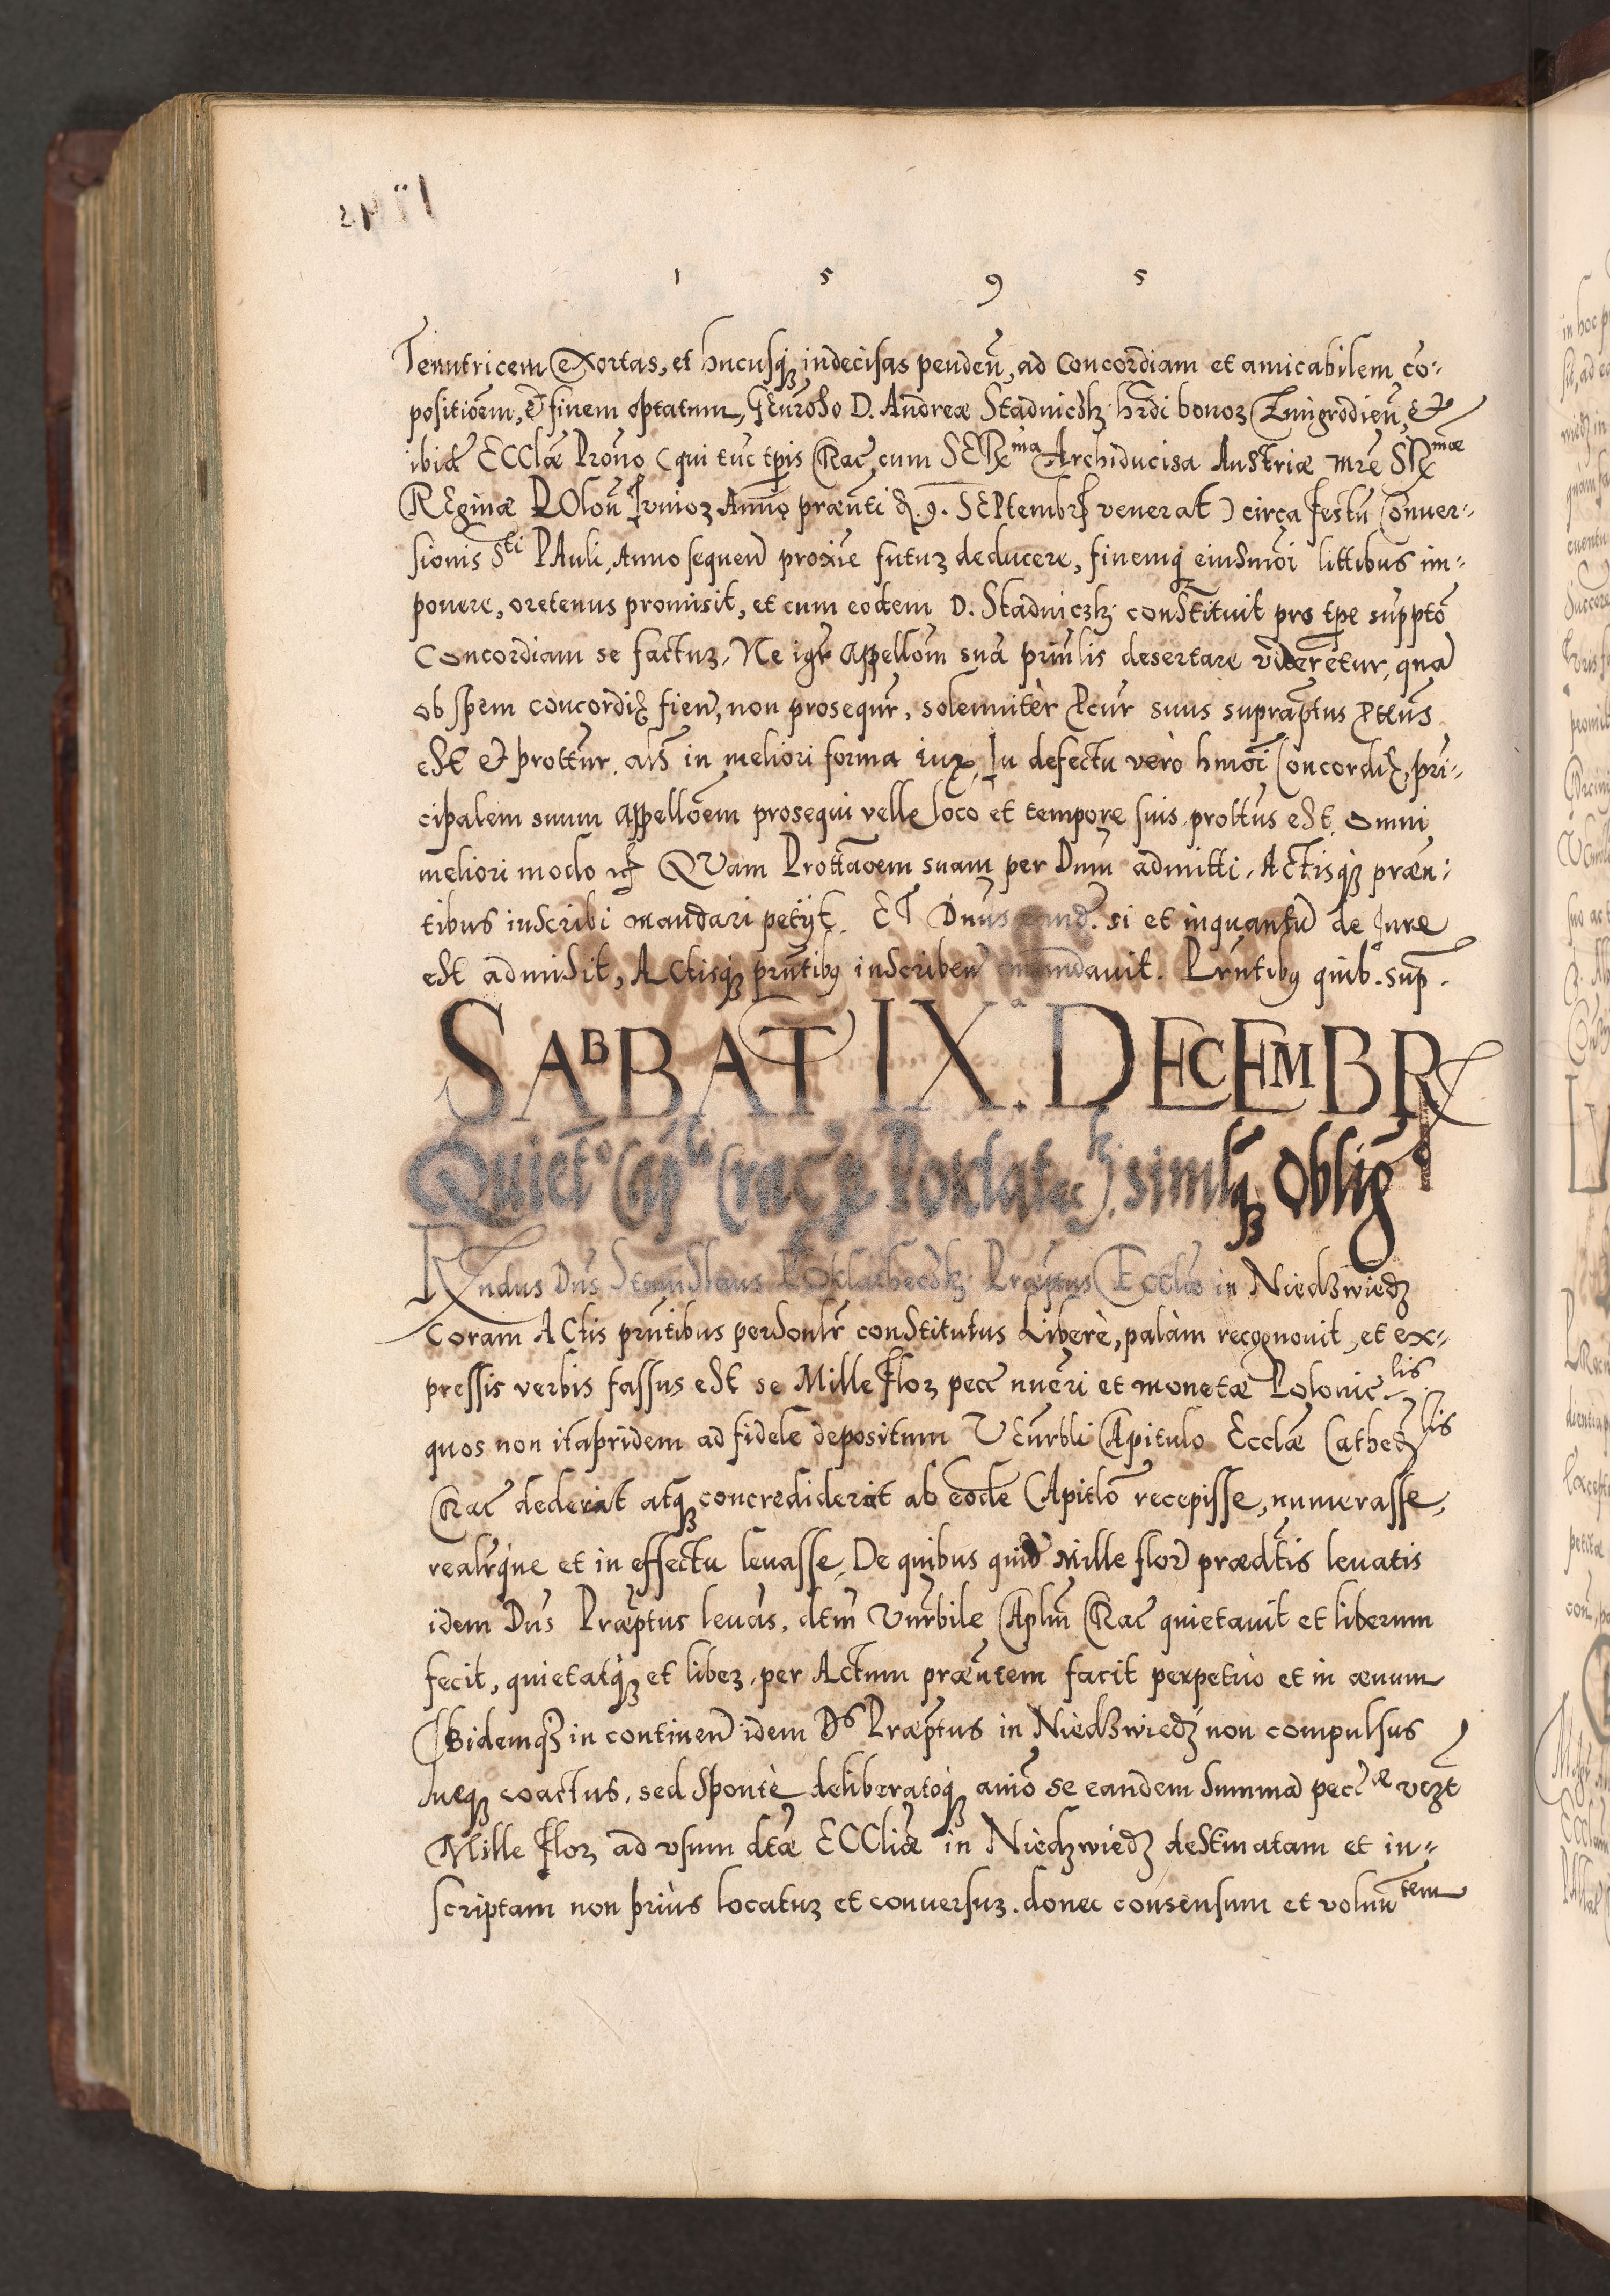 1 5 9 5
Tenutricem exortas, et hucusq; indecisas penden̄, ad concordiam et amicabilem cō-
positiōem, et finem optatum, Gen̄roso D. Andreæ Stadniczk: hr̄di bonoꝝ Zmigrodien̄, et
ibid̄ ECClæ Prōno (qui tūc tp̄is Crac̄, cum SERma Archiducisa Austriæ mr̄e SRmæ
REginæ POlon̄ Juniorꝫ Anno præn̄ti d. 9. SEPtembrꝭ venerat) circa festū Conver-
sionis Sti PAuli, Anno sequen̄ proxīe futuꝝ deducere, finemq; eiusmōi littibus im-
ponere, oretenus promisit, et cum eodem D. Stadniczk: constituit pro tp̄e supptō
Concordiam se factuꝝ. Ne igr̄ appellōm suā prin̄lis desertare viderētur, quā
ob spem concordiæ fien̄, non prosequr̄, solenniter Pcur̄ suus suprap̄tus Ptēus
est et prottūr, als̄ in meliori forma iurꝭ. In defectu verò hmōi Concordiæ, pri-
cipalem suum appellōem prosequi velle loco et tempore suis, proltūs est, omni
meliori modo etc QVam Prottāoem suam per Dnūm admitti, Actisq; præn-
tibus inscribi mandari petijt. ET Dnus eund̄. si et inquantū de Jure
est admisit, ACtisq; prn̄tibus inscriben̄ cōmendavit. Prn̄tibus quib. sup̄.
SABBAT IX.a DECEMBRꝭ
Quiet̄o Capli Crac̄ P Poklatec̄k: simulq; Oblig
Rndus Dn̄s Stanislaus POklatheczk: Præp̄tus Ecclīæ in Niedzwiedz
Coram ACtis prn̄tibus personlr̄ constitutus Liberè, palàm recognovit, et ex-
pressis verbis fassus est se Mille Floꝝ pecc̄ nuēri et monetæ Poloniclis
quos non itapridem ad fidele depositum VEnrbli CApitulo Ecclæ Cathedlis
CRac̄ dederat atq; concrediderat ab eodē CApitlō recepisse, numerasse,
realrq̇ue et in effectu levasse, De quibus quid̄ Mille flor̄ prædt̄is levatis
idem Dn̄s Præp̄tus levās, dt̄m Vnrbile CAplm̄ CRac̄ quietavit et liberum
fecit, quietatq; et libeꝝ, per Actum præn̄tem facit perpetùo et in ævum
IBidemq; in continen̄ idem Ds Præp̄tus in Niedzwiedz non compulsus
Neq; coactus, sed spontè deliberatoq; animō se eandem Summā pecc̄æ vꝫt
Mille Floꝝ ad usum dt̄æ ECCliæ in Niedzwiedz destinatam et in-
scriptam non priùs locatuꝝ et conversuꝝ, donec consensum et volun̄tem